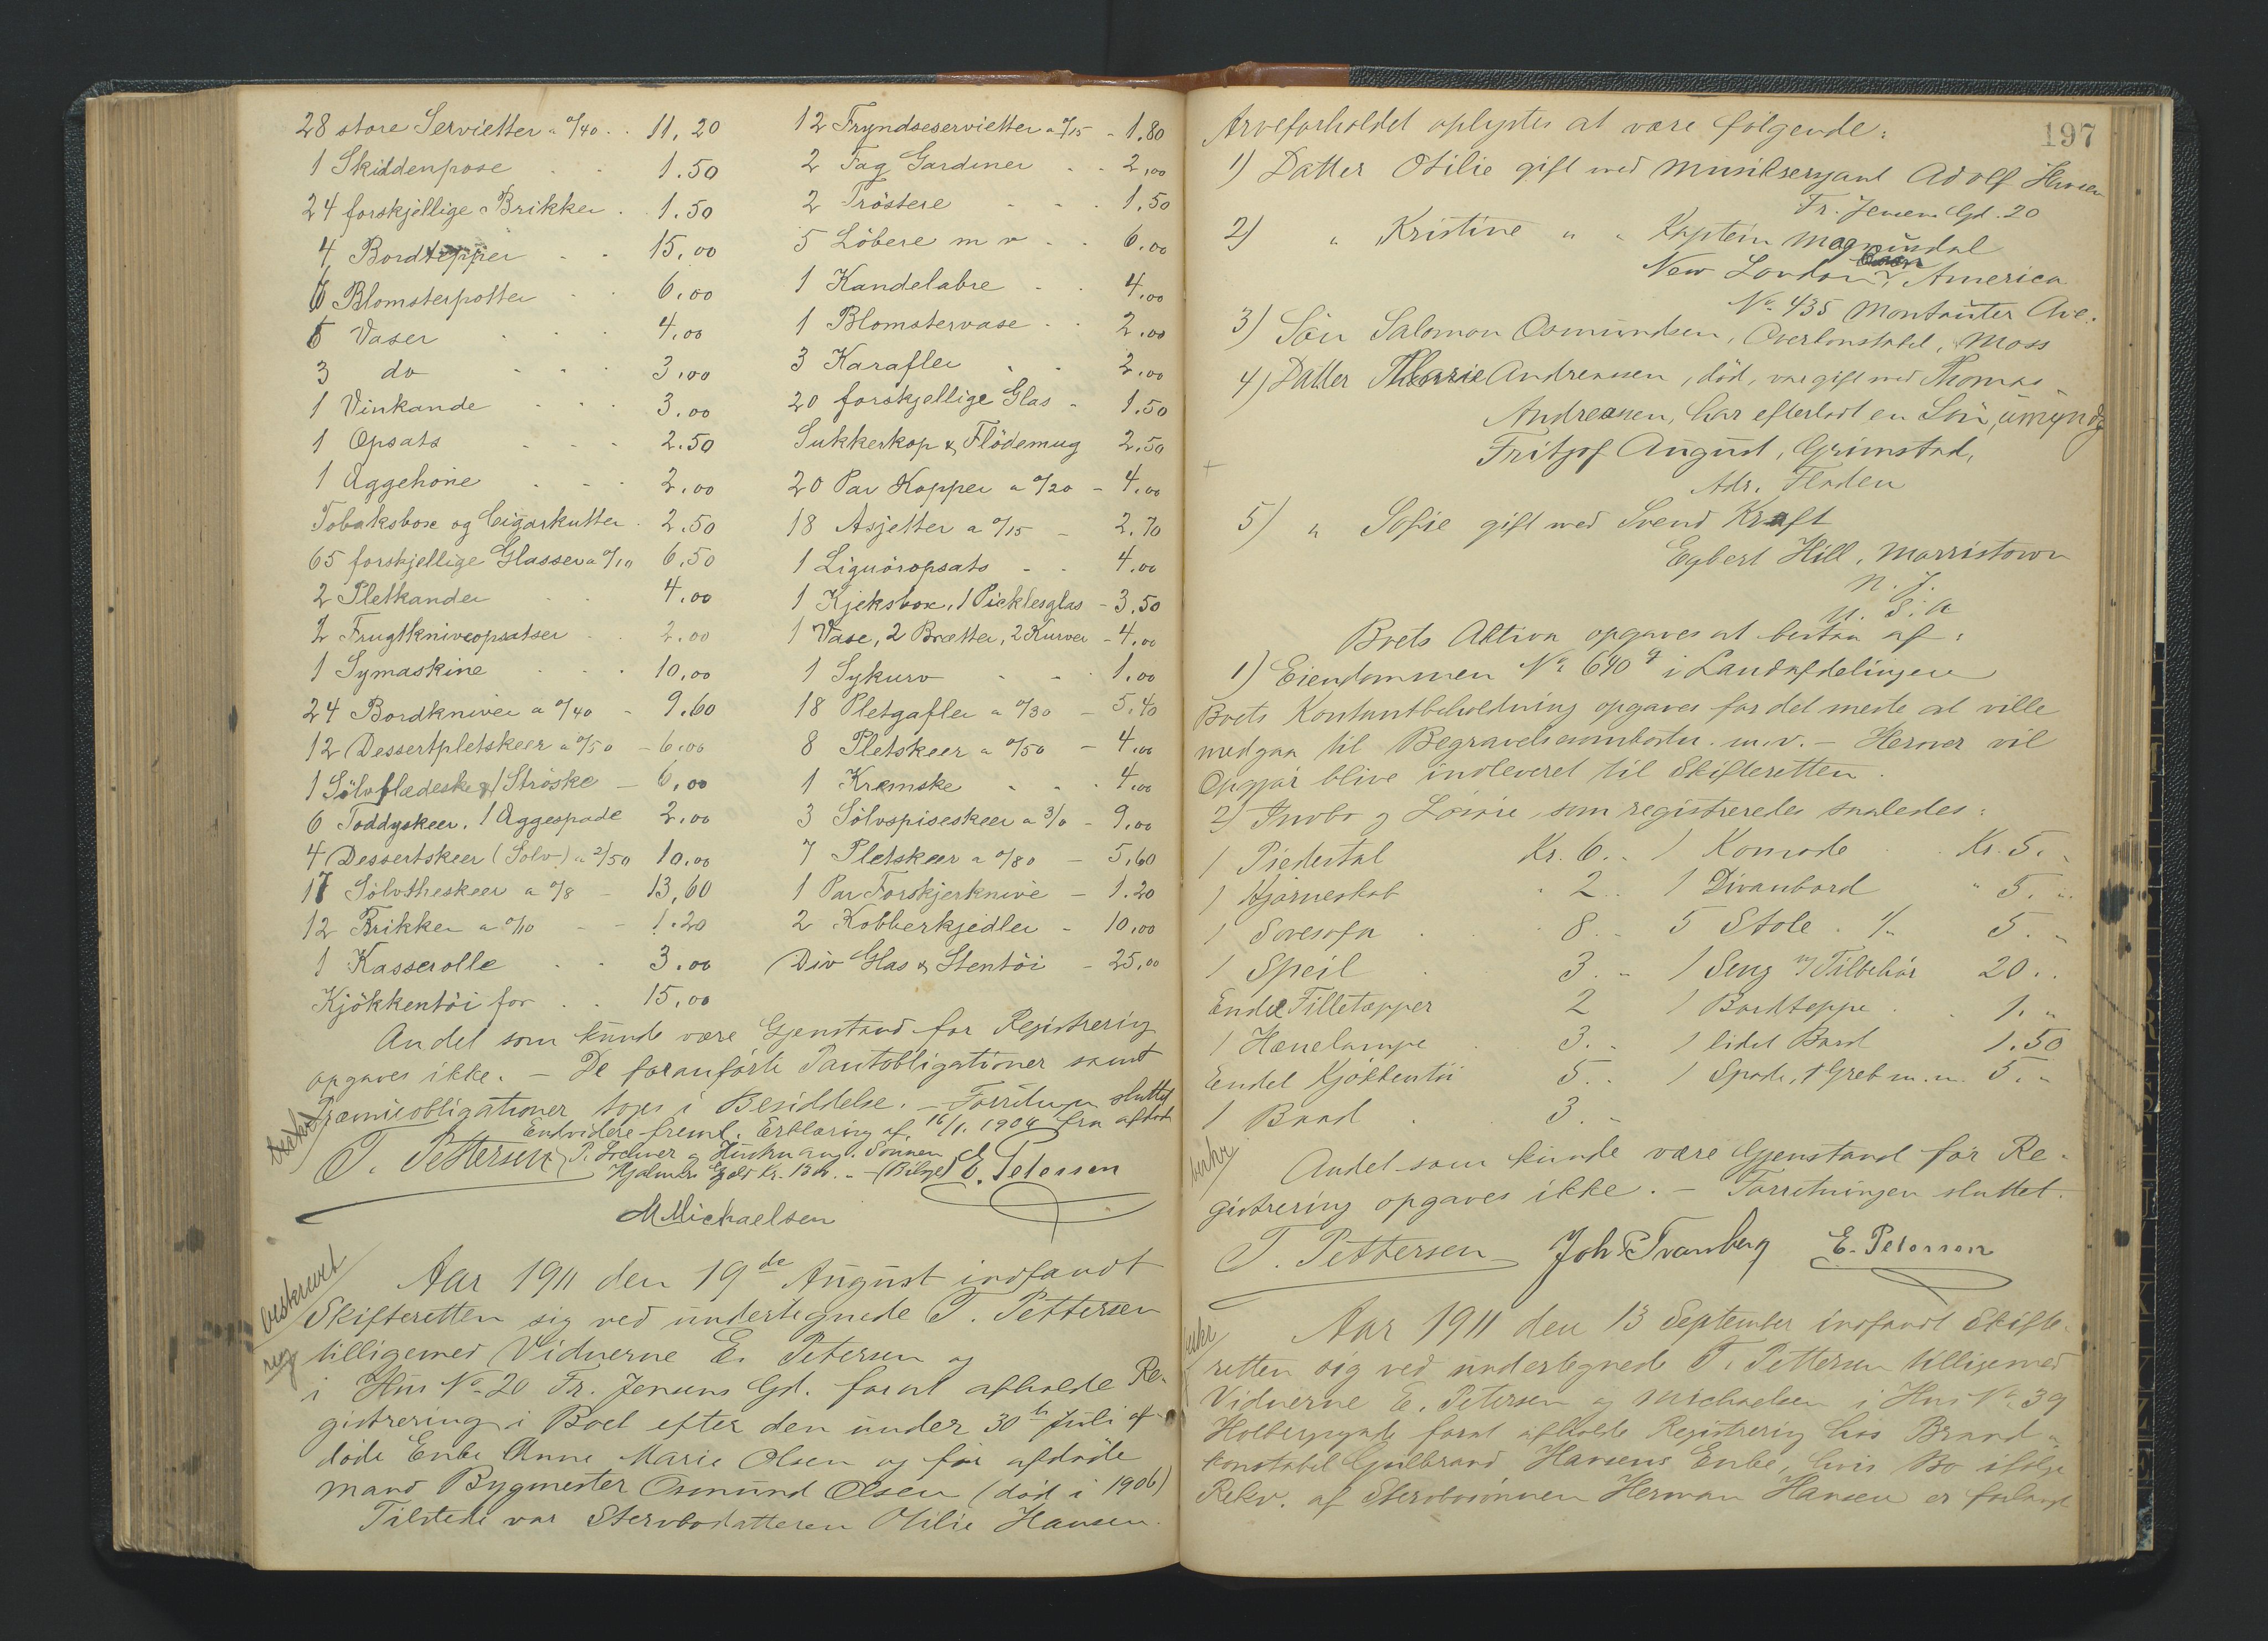 28 store Servietter a 0/40 . . 11.20
1 Skiddenpose . . 1.50
24 forskjellige Brikker . 1.50
4 Bordtepper . . 15.00
6 Blomsterpotter . . 6.00
5 Vaser . . . 4.00
3 do . . . 3.00
1 Vinkande . . . 3.00
1 Opsats . . . 2.50
1 Æggehöne . . . 2.00
Tobaksbox og Cigarkutter . 2.50
65 forskjellige Glasser a 0/10 6.50
2 Pletkander . . 4.00
2 Frugtkniveopsatser . . 2.00
1 Symaskine . . . 10.00
24 Bordkniver a 0/40 - 9.60
12 Dessertpletskeer a 0/50 - 6.00
1 Sölvflødeske & 1 Ströske - 6.00
6 Toddyskeer. 1 Æggespade 2.00
4 Dessertskeer (Sölv-) a 2/50 10.00
17 Sölvtheskeer a 0/8 - 13,60
12 Brikker a 0/10 - - 1.20
1 Kasserolle . . 3.00
Kjökkentöi for . . 15.00
12 Fryndseservietter a 0/15 - 1.80
2 Fag Gardiner . . 2.00
2 Tröstere - - . 1.50
5 Löbere m v . . 6.00
1 Kandelabre . . 4.00
1 Blomstervase . . 2.00
3 Karafler . . 2.00
20 forskjellige Glas - 1.50
Sukkerkop & Flödemug 2.50
20 Par Kopper a 0/20 - 4.00
18 Asjetter a 0/15 - 2.70
1 Liquöropsats - - 4.00
1 Kjeksbox, 1 Picklesglas - 3.50
1 Vase, 2 Brætter, 2 Kurver - 4.00
1 Sykurv - - . 1.00
18 Pletgafler a 0/30 - 5.40
8 Pletskeer a 0/50 - 4.00
1 Kremske - - . 4.00
3 Sölvspiseskeer a 3/0 - 9.00
7 Pletskeer a 0/80 - 5.60
1 Par Forskjerknive - 1.20
2 Kobberkjedler - 10.00
Div Glas & Stentöi - 25.00
Andet som kunde være Gjenstand for Registrering
opgaves ikke. - De foranförte Pantobligationer samt
Præmieobligationer toges i Besiddelse. - Forretningen sluttet
Endvidere freml. Erklæring af 16/1. 1904 fra afdöde
Hjalmar Gjæld Kr. 1300.- (Bilag)
T. Pettersen E. Petersen
M Michaelsen
beskrevet
Aar 1911 den 19de August indfandt
Skifteretten sig ved undertegnede T. Pettersen
tilligemed Vidnerne E. Petersen og
i Hus No 20 Fr. Jensens Gd. forat afholde Re-
gistrering i Boet efter den under 30te Juli af-
döde Enke Anne Marie Olsen og för afdöde
Mand Bygmester Osmund Olsen (död i 1906)
Tilstede var Stervbodatteren Otilie Hansen.
197
Arveforholdet oplystes at være fölgende:
1) Datter Otilie gift med Musiksersjant Adolf Hansen
Fr. Jensens Gd. 20
2) " Kristine " " Kaptein Magnusdal
New London, America
No. 435 Montauter Ave.
3) Sön Salomon Osmundsen, Overkonstabel, Moss
4) Datter Marie Andreassen, död, var gift med Thomas
Andreassen, har efterladt en Sön, umyndg
Fritjof August, Grimstad,
Adr. Fladen
5) " Sofie gift med Svend Kraft
Egbert Hill, Morristown
N. J.
U. S. A
Boets Aktiva opgaves at bestaa af:
1) Eiendommen No 690 q i Landafdelingen
Boets Kontantbeholdning opgaves for det meste at ville
medgaa til Begravelsesomkostn. m.v. - Herover vil
Opgjör blive indleveret til Skifteretten.
2) Indbo og Lösöre, som registreredes saaledes:
1 Piedestal Kr. 6. - 1 Komode . . Kr. 5. -
1 Hjörneskab " 2. . 1 Divanbord " 5. -
1 Sovesofa . . 8. - 5 Stole . 1/- 5. -
1 Speil . 3. - 1 Seng m/ Tilbehör 20. .
Endel Filletepper 2 1 Bordteppe . . 1. -
1 Hænelampe . 3. - 1 lidet Bord 1.50
Endel Kjökkentöi 5. . 1 Spade, 1 Greb m. m. 5. -
1 Bord . 3. -
beskr
Andet som kunde være Gjenstand for Re-
gistrering opgaves ikke. - Forretningen sluttet.
T. Pettersen Joh P Tranberg E. Petersen
beskr
Aar 1911 den 13 September indfandt Skifte-
retten sig ved undertegnede T. Pettersen tilligemed
Vidnerne E. Petersen og Michaelsen i Hus No. 39
Holbergsgade forat afholde Registrering hos Brand-
konstabel Gulbrand Hansens Enke, hvis Bo ifölge
Rekv. af Stervbosönnen Herman Hansen er forlangt